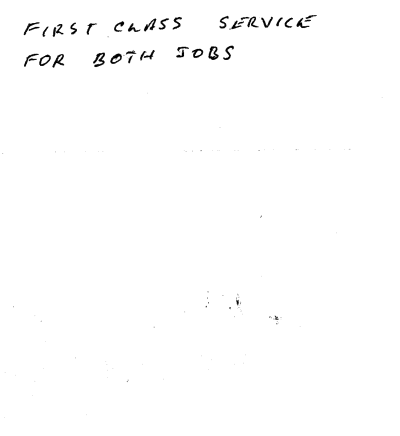 FIRST CLASS SERVICE
FOR BOTH JOBS